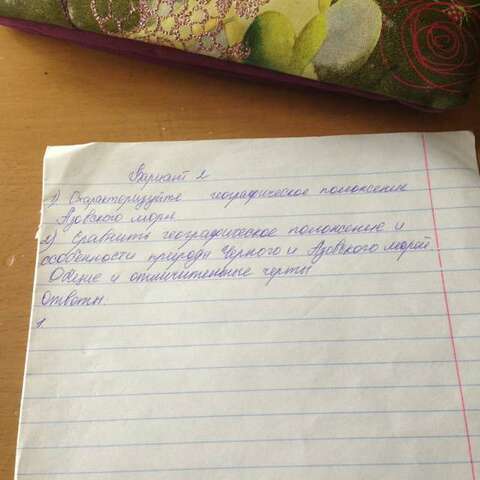 Вариант 2
1) Охарактеризуйте географическое положение
Азовского моря.
2) Сравнить географическое положение и
особенности природы Чёрного и Азовского морей
Общие и отличительные черты
Ответы.
1.